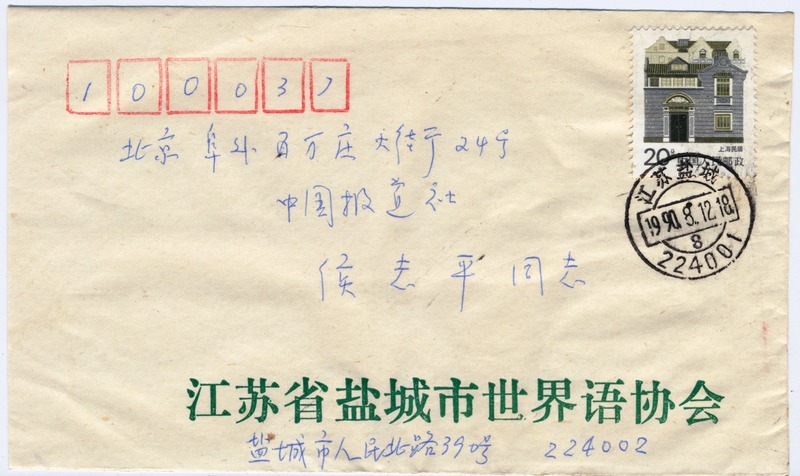 100037
北京阜外百万庄大街24号
中国报道社
侯志平同志
上海民居
20分 中国人民邮政
江苏盐城
1990.8.12.18
8
224001
江苏省盐城市世界语协会
盐城市人民北路390号 224002